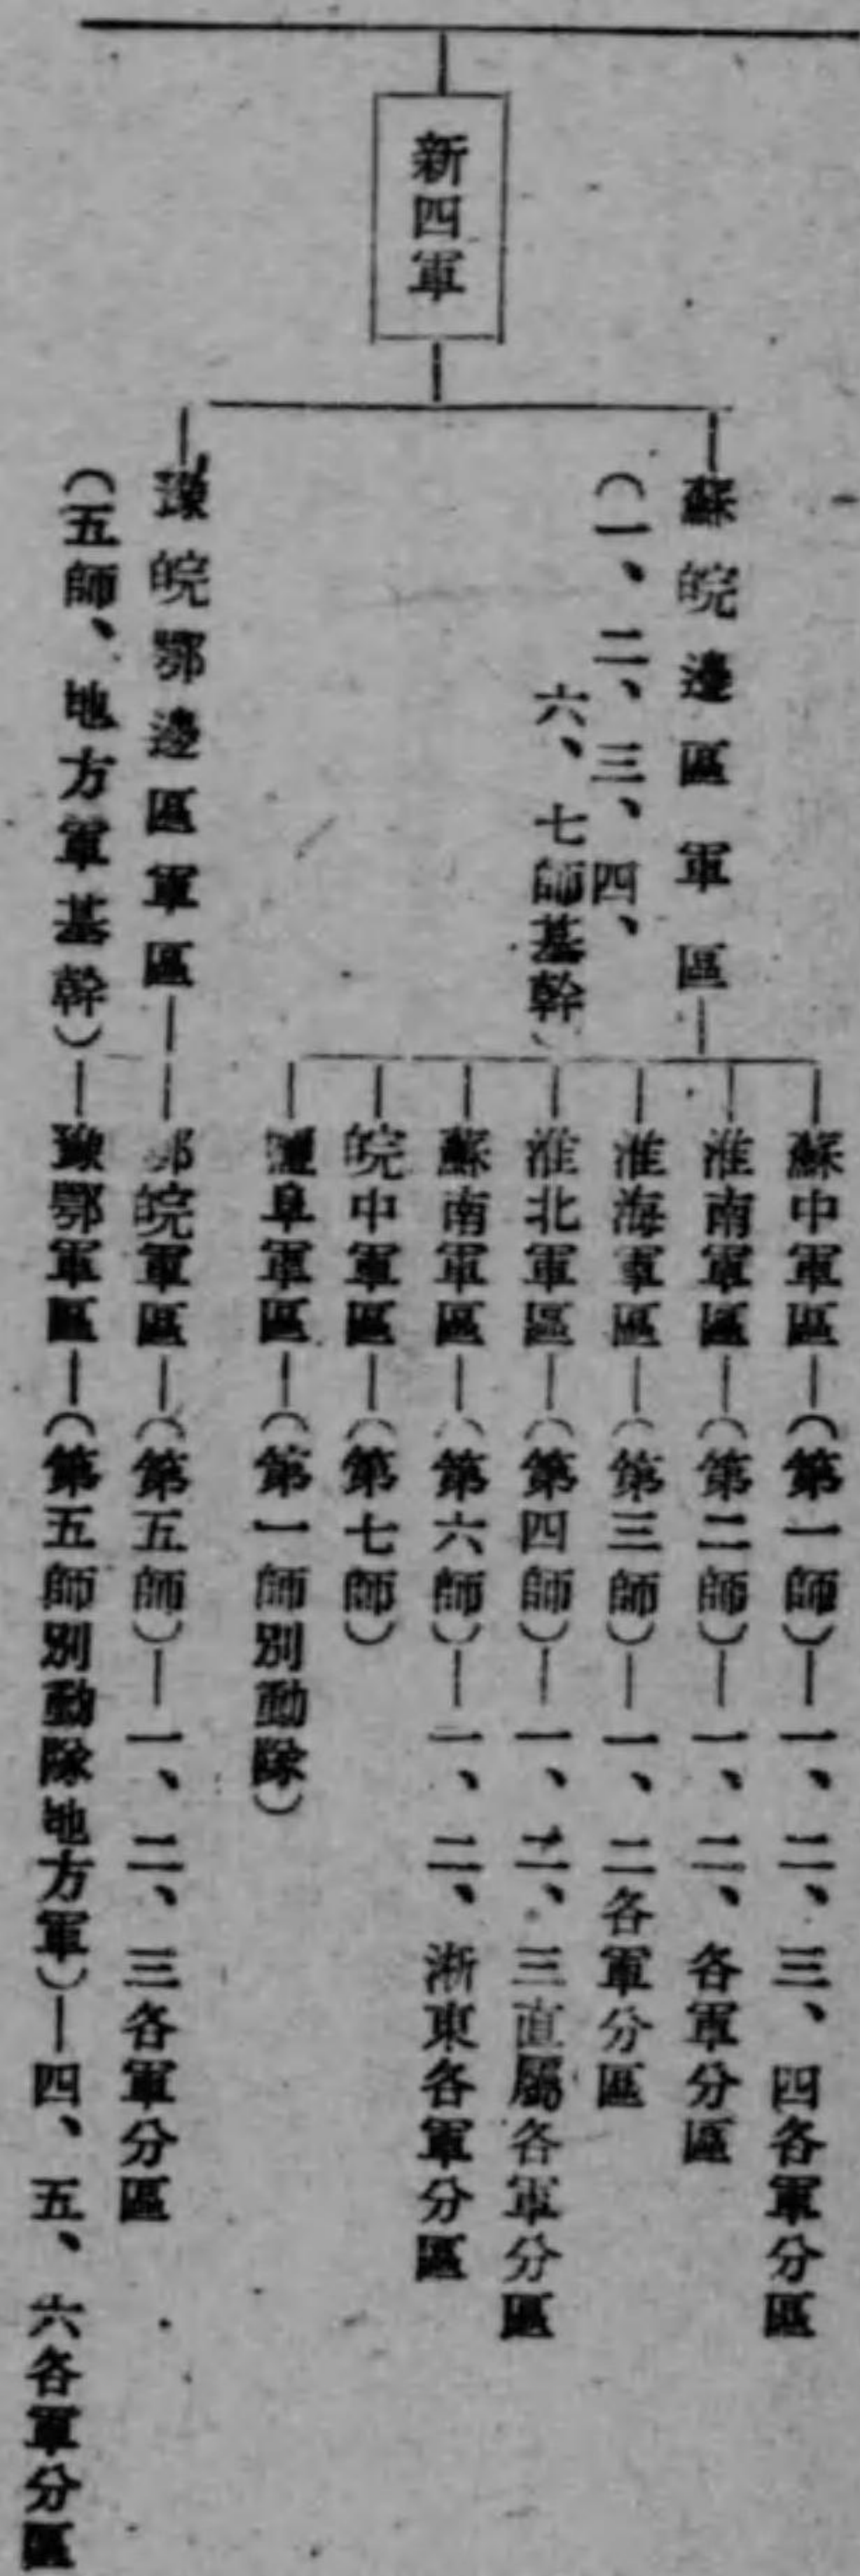 新四軍
蘇皖邊區軍區
(一、二、三、四、
六、七師基幹)
蘇中軍區—(第一師)—一、二、三、四各軍分區
淮南軍區—(第二師)—一、二、各軍分區
淮海軍區—(第三師)—一、二各軍分區
淮北軍區—(第四師)—一、二、三直屬各軍分區
蘇南軍區—(第六師)—一、二、浙東各軍分區
皖中軍區—(第七師)
鹽阜軍區—(第一師別動隊)
豫皖鄂邊區軍區
(五師、地方軍基幹)
鄂皖軍區—(第五師)—一、二、三各軍分區
豫鄂軍區—(第五師別動隊地方軍)—四、五、六各軍分區